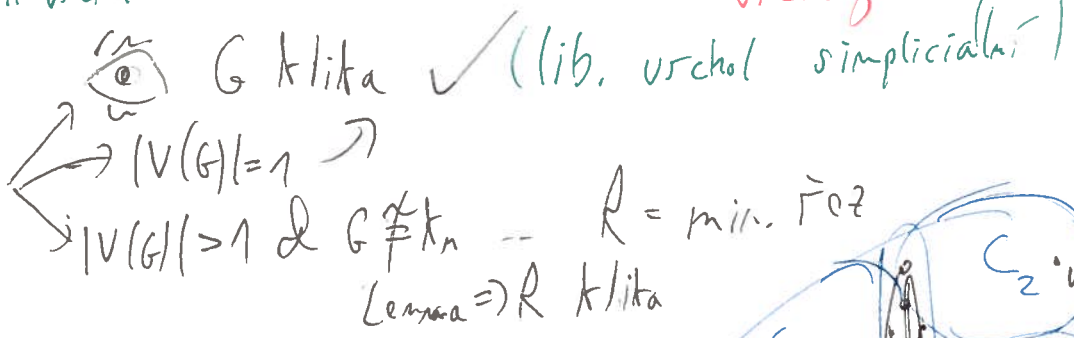 G klika ✓ (lib. vrchol simpliciální)
|V(G)|=1
|V(G)|>1 & G≇Kₙ -- R = min. řez
Lemma => R klika
C₂